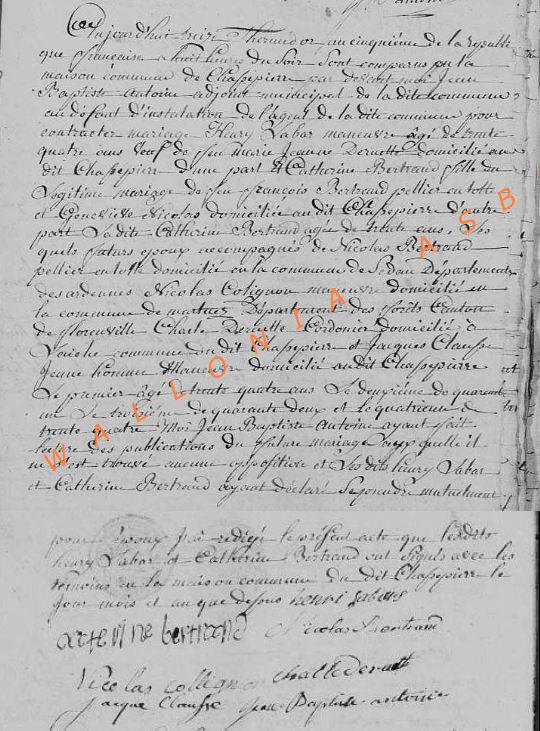 Aujourd'huit treize Thermidor an cinquiéme de la republi
que française a huit heures du soir sont comparus pu la
maison commune de Chassepierre par devant moi Jean
Baptiste Antoine adjoint municipal de la dite commune
au défaut d'instalation de l'agent de la dite commune pour
contracter mariage Henry Labar maneuvre agé de trente
quatre ans veuf de feu Marie Jeanne Deruette domicilié au
dit Chassepierre d'une part & Catherine Bertrand fille du
Legitime mariage de feu françois Bertrand pellier en totte
et Genevieve Nicolas domiciliée au dit Chassepierre d'autre
part La dite Catherine Bertrand agée de trente ans. Les
quels futurs epoux accompagnés de Nicolas Bertrand
pellier en totte domicilié en la commune de Sedan Departement
des ardennes Nicolas Colignon maneuvre domicilié en
la commune de Départment des forêts Canton
de florenville Charle Deruette Cordonier domicilié à
Laiche commune du dit Chassepierre et Jacques Clausse
jeune homme Maneuvre domicilié au dit Chassepierre
Le premier âgé trente quatre ans Le deuxième de quarante
un Le troisième de quarante deux et le quatrieme de
trente quatre Moi Jean Baptiste Antoine ayant fait
lecture des publications du futur mariage auxquelle il
ne s'est trouvé aucune oppositive et Les dits henry Labar
et Catherine Bertrand ayant déclaré Se prendre mutuelment
pour époux J'ai redigé le présent acte que les dits
henry Labar et Catherine Bertrand ont signés avec les
témoins en la maison commune du dit Chassepierre le
jour mois et an que dessus henri Labar
caterine bertrand Nicolas Bertrand
Nicolas collignon challe deruett
Jacque Clausse Jean Baptiste antoine
WALLONIA ASB